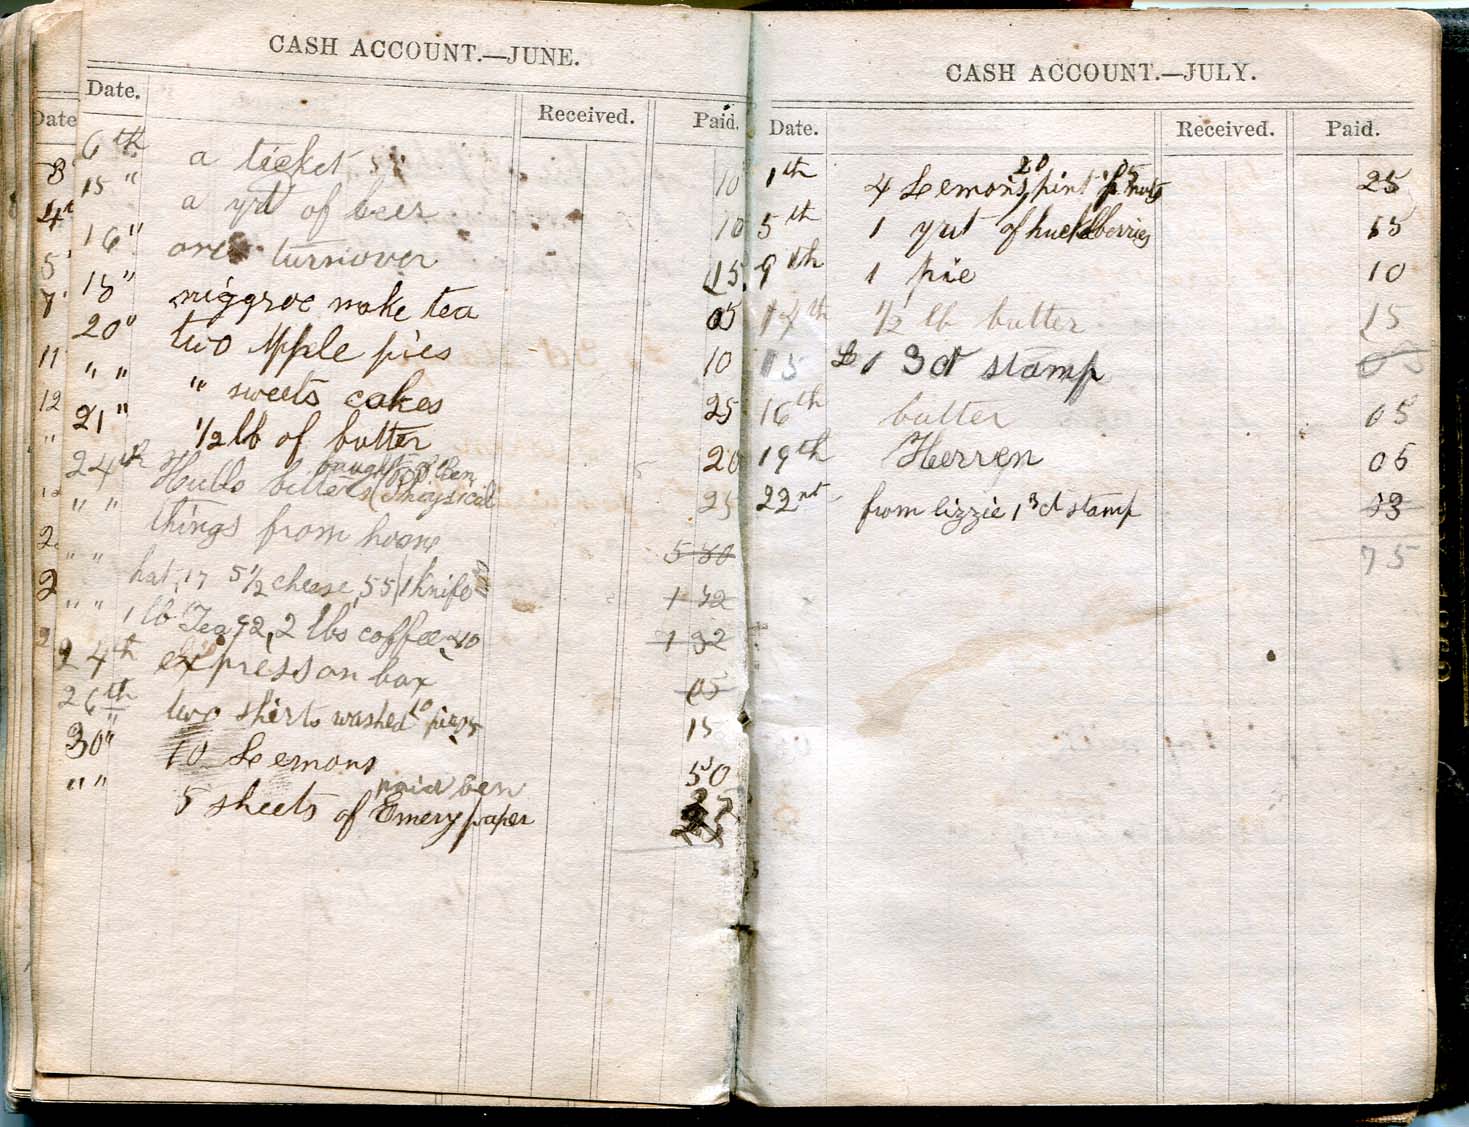 CASH ACCOUNT.—JUNE.
Date. Received. Paid.
6th a ticket 10
15" a qrt of beer 10
16" one turnover 15
18" niggroe make tea 05
20" two Apple pies 10
" " " sweets cakes 25
21" 1/2 lb of butter 20
24th bitters 25
" " things from home 5 80
" " hat, 17 5 1/2 cheese, 55 1 knife 1 42
" " 1 lb Tea 92, 2 lbs coffee 40 1 32
24th express on box 05
26th two shirts washed 10 pies 5 15
30" 10 Lemons 50
paid ben
" " 5 sheets of Emery paper 25
Date
8
4t
5'
7'
11
12
"
CASH ACCOUNT.—JULY.
Date. Received. Paid.
1th 4 Lemons, 20 pint P nuts 05 25
5th 1 qrt of huckelberries 15
9th 1 pie 10
14th 1/2 lb butter 15
15 1 3ct stamp 03
16th butter 05
19th Herren 05
22nt from lizzie 1 3ct stamp 03
75